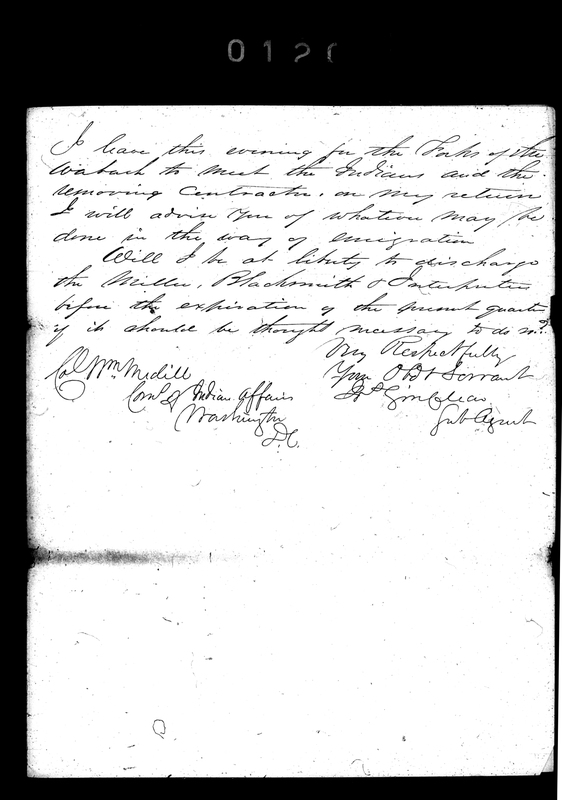 012
I leave this evening for the Forks of the
Wabash to meet the Indians and the
removing Contractor. on my return
I will advise you of whatever may be
done in the way of emigration
Will I be at liberty to discharge
the Miller, Blacksmith & Interpreter
before the expiration of the present quarter
if it should be thought necessary to do so?
Very Respectfully
Your Obdt Servant
Sub Agent
Col Wm Medill
Coml of Indian Affairs
Washington
D.C.